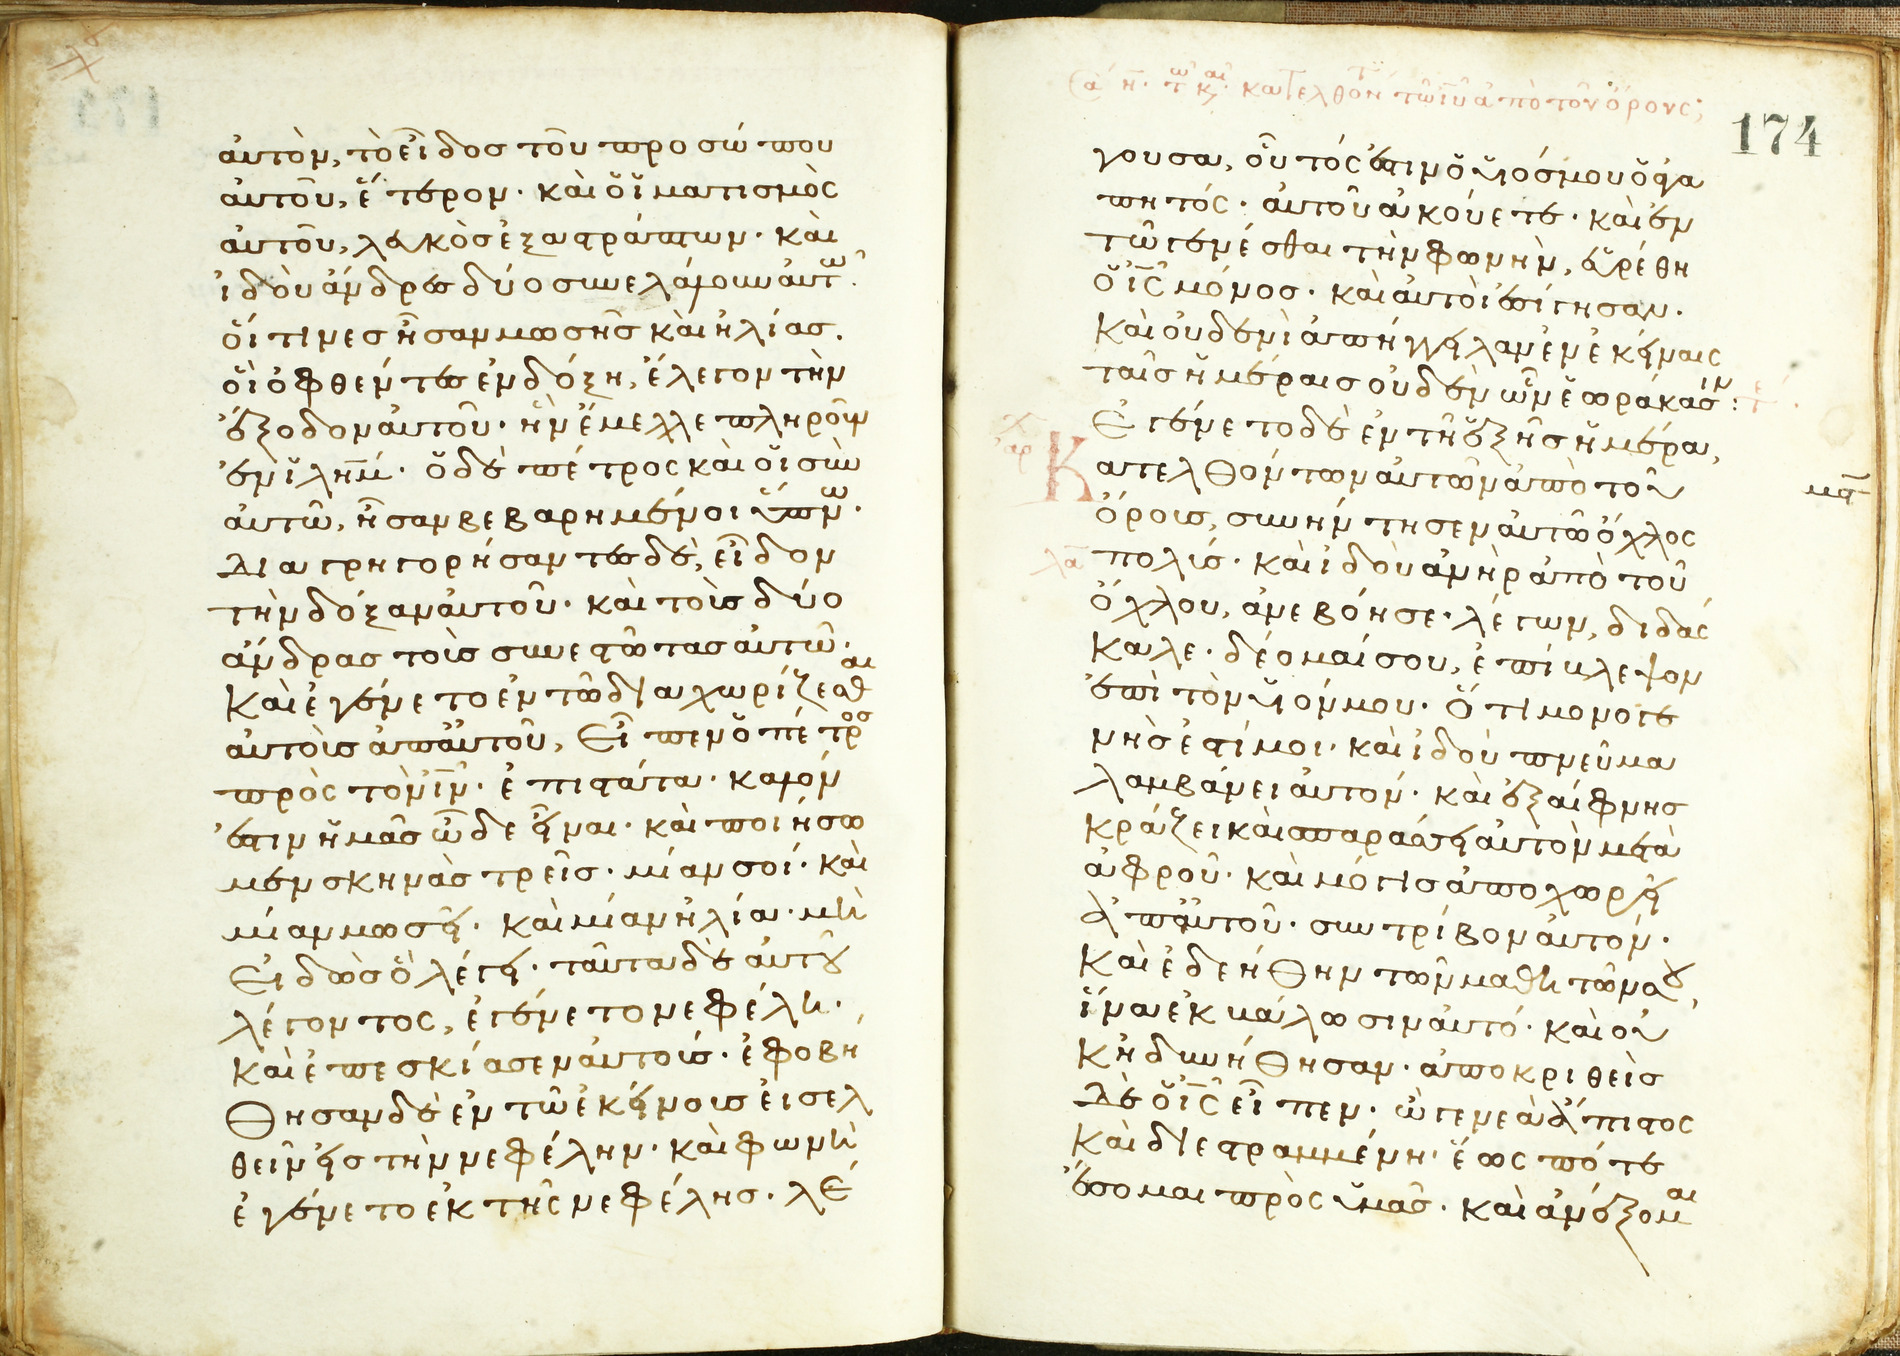 αὐτὸν, τὸ εἶδος τοῦ προσώπου
αὐτοῦ, ἕτερον· καὶ ὁ ἱματισμὸς
αὐτοῦ, λευκὸς ἐξαστράπτων· καὶ
ἰδοὺ ἄνδρες δύο συνελάλουν αὐτῶ·
οἵτινες ἦσαν μωσῆς καὶ ἠλίας.
οἳ ὀφθέντες ἐν δόξη, ἔλεγον τὴν
ἔξοδον αὐτοῦ· ἣν ἔμελλε πληροῦν
ἐν ἱλημ· ὁ δὲ πέτρος καὶ οἱ σὺν
αὐτῶ, ἦσαν βεβαρημένοι ὕπνω·
διαγρηγορήσαντες δὲ, εἶδον
τὴν δόξαν αὐτοῦ· καὶ τοὺς δύο
ἄνδρας τοὺς συνεστῶτας αὐτῶ·
Καὶ ἐγένετο ἐν τῶ διαχωρίζεσθαι
αὐτοὺς ἀπ' αὐτοῦ, Εἶπεν ὁ πέτρος
πρὸς τὸν ιν· ἐπιστάτα· καλόν
ἐστιν ἡμᾶς ὧδε εἶναι· καὶ ποιήσω
μεν σκηνὰς τρεῖς· μίαν σοί· καὶ
μίαν μωσεῖ· καὶ μίαν ἠλία· μὴ
Εἰδὼς ὃ λέγει· ταῦτα δὲ αὐτοῦ
λέγοντος, ἐγένετο νεφέλη·
καὶ ἐπεσκίασεν αὐτούς· ἐφοβή
θησαν δὲ ἐν τῶ ἐκείνους εἰσελ
θεῖν εἰς τὴν νεφέλην· καὶ φωνὴ
ἐγένετο ἐκ τῆς νεφέλης· λέ
174
γουσα, οὗτός ἐστιν ὁ υἱός μου ὁ ἀγα
πητός· αὐτοῦ ἀκούετε· καὶ ἐν
τῶ γενέσθαι τὴν φωνὴν, εὑρέθη
ὁ ις μόνος· καὶ αὐτοὶ ἐσίγησαν.
Καὶ οὐδενὶ ἀπήγγειλαν ἐν ἐκείναις
ταῖς ἡμέραις οὐδὲν ὧν ἑωράκασιν:
Ἐγένετο δὲ ἐν τῆ ἑξῆς ἡμέρα,
Κατελθόντων αὐτῶν ἀπὸ τοῦ
ὄρους, συνήντησεν αὐτῶ ὄχλος
πολύς· καὶ ἰδοὺ ἀνὴρ ἀπὸ τοῦ
ὄχλου, ἀνεβόησε· λέγων, διδάσ
καλε· δέομαί σου, ἐπίβλεψον
ἐπὶ τὸν υἱόν μου· ὅτι μονογε
νὴς ἐστί μοι· καὶ ἰδοὺ πνεῦμα
λαμβάνει αὐτόν· καὶ ἐξαίφνης
κράζει καὶ σπαράσσει αὐτὸν μετὰ
ἀφροῦ· καὶ μόγις ἀποχωρεῖ
ἀπ' αὐτοῦ· συντρίβον αὐτόν·
Καὶ ἐδεήθην τῶν μαθητῶν σου,
ἵνα ἐκβάλωσιν αὐτό· καὶ οὐ
κ ἠδυνήθησαν· ἀποκριθεὶς
δὲ ὁ ις εἶπεν· ὦ γενεὰ ἄπιστος
καὶ διεστραμμένη· ἕως πότε
ἔσομαι πρὸς ὑμᾶς· καὶ ἀνέξομαι